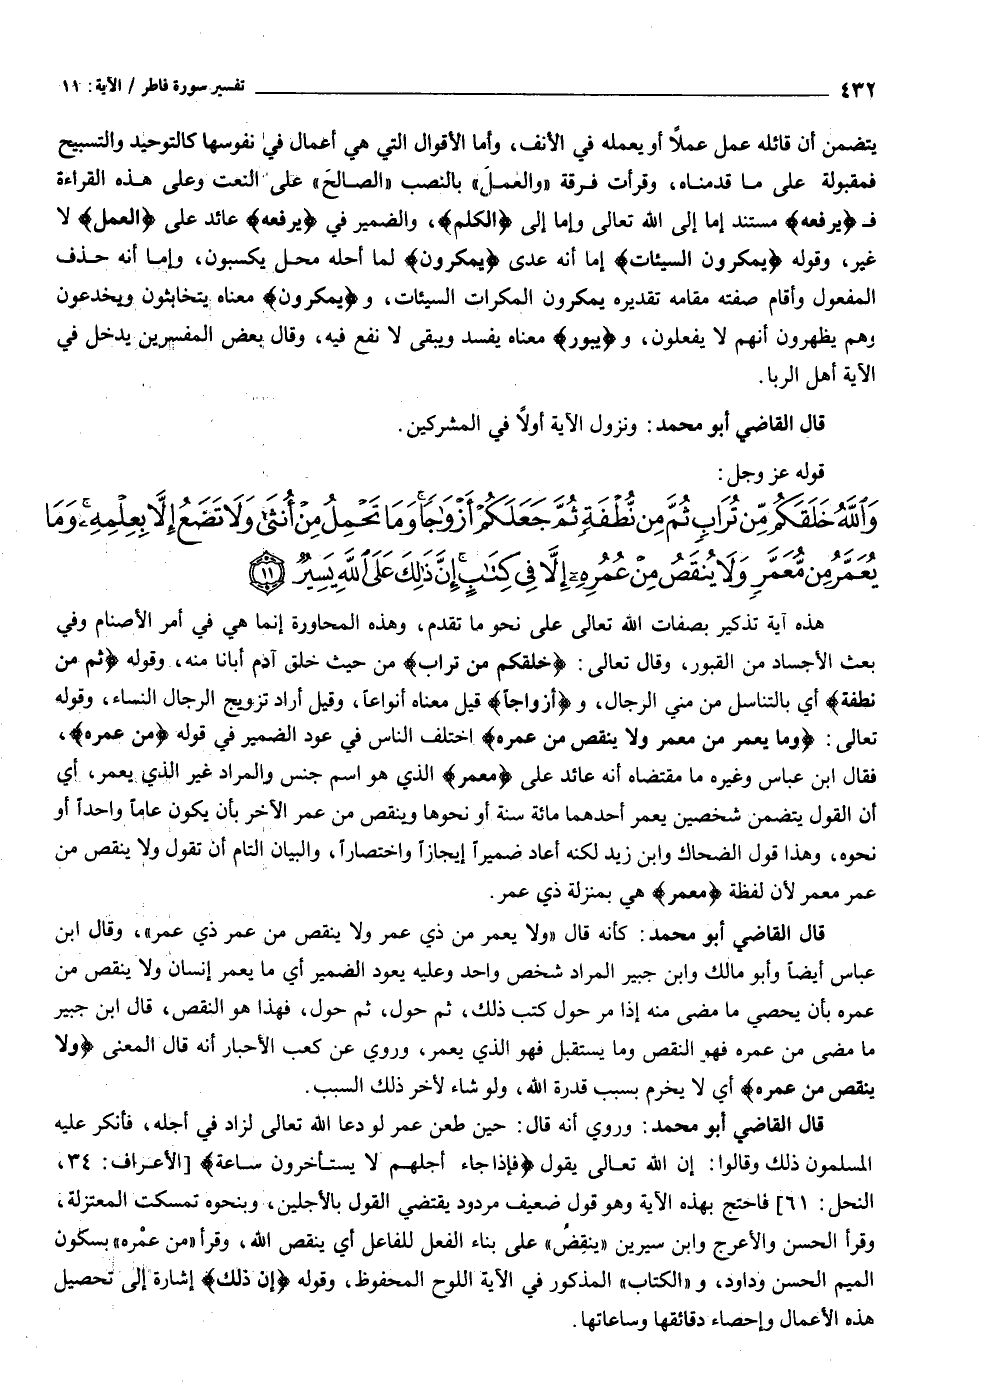 ٤٣٢ تفسير سورة فاطر / الآية: ١١
يتضمن أن قائله عمل عملاً أو يعمله في الأنف، وأما الأقوال التي هي أعمال في نفوسها كالتوحيد والتسبيح
فمقبولة على ما قدمناه، وقرأت فرقة «والعملَ» بالنصب «الصالحَ» على النعت وعلى هذه القراءة
فـ ﴿يرفعه﴾ مستند إما إلى الله تعالى وإما إلى ﴿الكلم﴾، والضمير في ﴿يرفعه﴾ عائد على ﴿العمل﴾ لا
غير، وقوله ﴿يمكرون السيئات﴾ إما أنه عدى ﴿يمكرون﴾ لما أحله محل يكسبون، وإما أنه حذف
المفعول وأقام صفته مقامه تقديره يمكرون المكرات السيئات، و ﴿يمكرون﴾ معناه يتخابثون ويخدعون
وهم يظهرون أنهم لا يفعلون، و ﴿يبور﴾ معناه يفسد ويبقى لا نفع فيه، وقال بعض المفسرين يدخل في
الآية أهل الربا.
قال القاضي أبو محمد: ونزول الآية أولاً في المشركين.
قوله عز وجل:
وَاللَّهُ خَلَقَكُم مِّن تُرَابٍ ثُمَّ مِن نُّطْفَةٍ ثُمَّ جَعَلَكُمْ أَزْوَاجًا ۚ وَمَا تَحْمِلُ مِنْ أُنثَىٰ وَلَا تَضَعُ إِلَّا بِعِلْمِهِ ۚ وَمَا
يُعَمَّرُ مِن مُّعَمَّرٍ وَلَا يُنقَصُ مِنْ عُمُرِهِ إِلَّا فِي كِتَابٍ ۚ إِنَّ ذَٰلِكَ عَلَى اللَّهِ يَسِيرٌ ١١
هذه آية تذكير بصفات الله تعالى على نحو ما تقدم، وهذه المحاورة إنما هي في أمر الأصنام وفي
بعث الأجساد من القبور، وقال تعالى: ﴿خلقكم من تراب﴾ من حيث خلق آدم أبانا منه، وقوله ﴿ثم من
نطفة﴾ أي بالتناسل من مني الرجال، و ﴿أزواجاً﴾ قيل معناه أنواعاً، وقيل أراد تزويج الرجال النساء، وقوله
تعالى: ﴿وما يعمر من معمر ولا ينقص من عمره﴾ اختلف الناس في عود الضمير في قوله ﴿من عمره﴾،
فقال ابن عباس وغيره ما مقتضاه أنه عائد على ﴿معمر﴾ الذي هو اسم جنس والمراد غير الذي يعمر، أي
أن القول يتضمن شخصين يعمر أحدهما مائة سنة أو نحوها وينقص من عمر الآخر بأن يكون عاماً واحداً أو
نحوه، وهذا قول الضحاك وابن زيد لكنه أعاد ضميراً إيجازاً واختصاراً، والبيان التام أن تقول ولا ينقص من
عمر معمر لأن لفظة ﴿معمر﴾ هي بمنزلة ذي عمر.
قال القاضي أبو محمد: كأنه قال «ولا يعمر من ذي عمر ولا ينقص من عمر ذي عمر»، وقال ابن
عباس أيضاً وأبو مالك وابن جبير المراد شخص واحد وعليه يعود الضمير أي ما يعمر إنسان ولا ينقص من
عمره بأن يحصي ما مضى منه إذا مر حول كتب ذلك، ثم حول، ثم حول، فهذا هو النقص، قال ابن جبير
ما مضى من عمره فهو النقص وما يستقبل فهو الذي يعمر، وروي عن كعب الأحبار أنه قال المعنى ﴿ولا
ينقص من عمره﴾ أي لا يخرم بسبب قدرة الله، ولو شاء لأخر ذلك السبب.
قال القاضي أبو محمد: وروي أنه قال: حين طعن عمر لو دعا الله تعالى لزاد في أجله، فأنكر عليه
المسلمون ذلك وقالوا: إن الله تعالى يقول ﴿فإذا جاء أجلهم لا يستأخرون ساعة﴾ [الأعراف: ٣٤،
النحل: ٦١] فاحتج بهذه الآية وهو قول ضعيف مردود يقتضي القول بالأجلين، وبنحوه تمسكت المعتزلة،
وقرأ الحسن والأعرج وابن سيرين «ينقضُ» على بناء الفعل للفاعل أي ينقص الله، وقرأ «من عمْره» بسكون
الميم الحسن وداود، و «الكتاب» المذكور في الآية اللوح المحفوظ، وقوله ﴿إن ذلك﴾ إشارة إلى تحصيل
هذه الأعمال وإحصاء دقائقها وساعاتها.